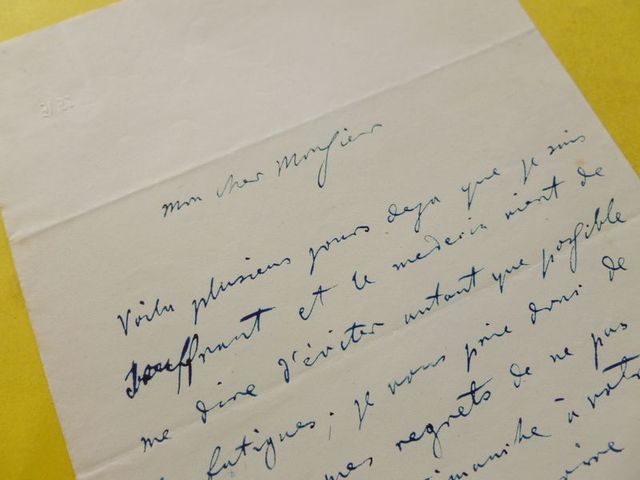 mon cher Monsieur
Voila plusieurs jours deja que je suis
souffrant et le medecin vient de
me dire d'éviter autant que possible
fatigues, je vous prie donc de
mes regrets de ne pas
dimanche à votre